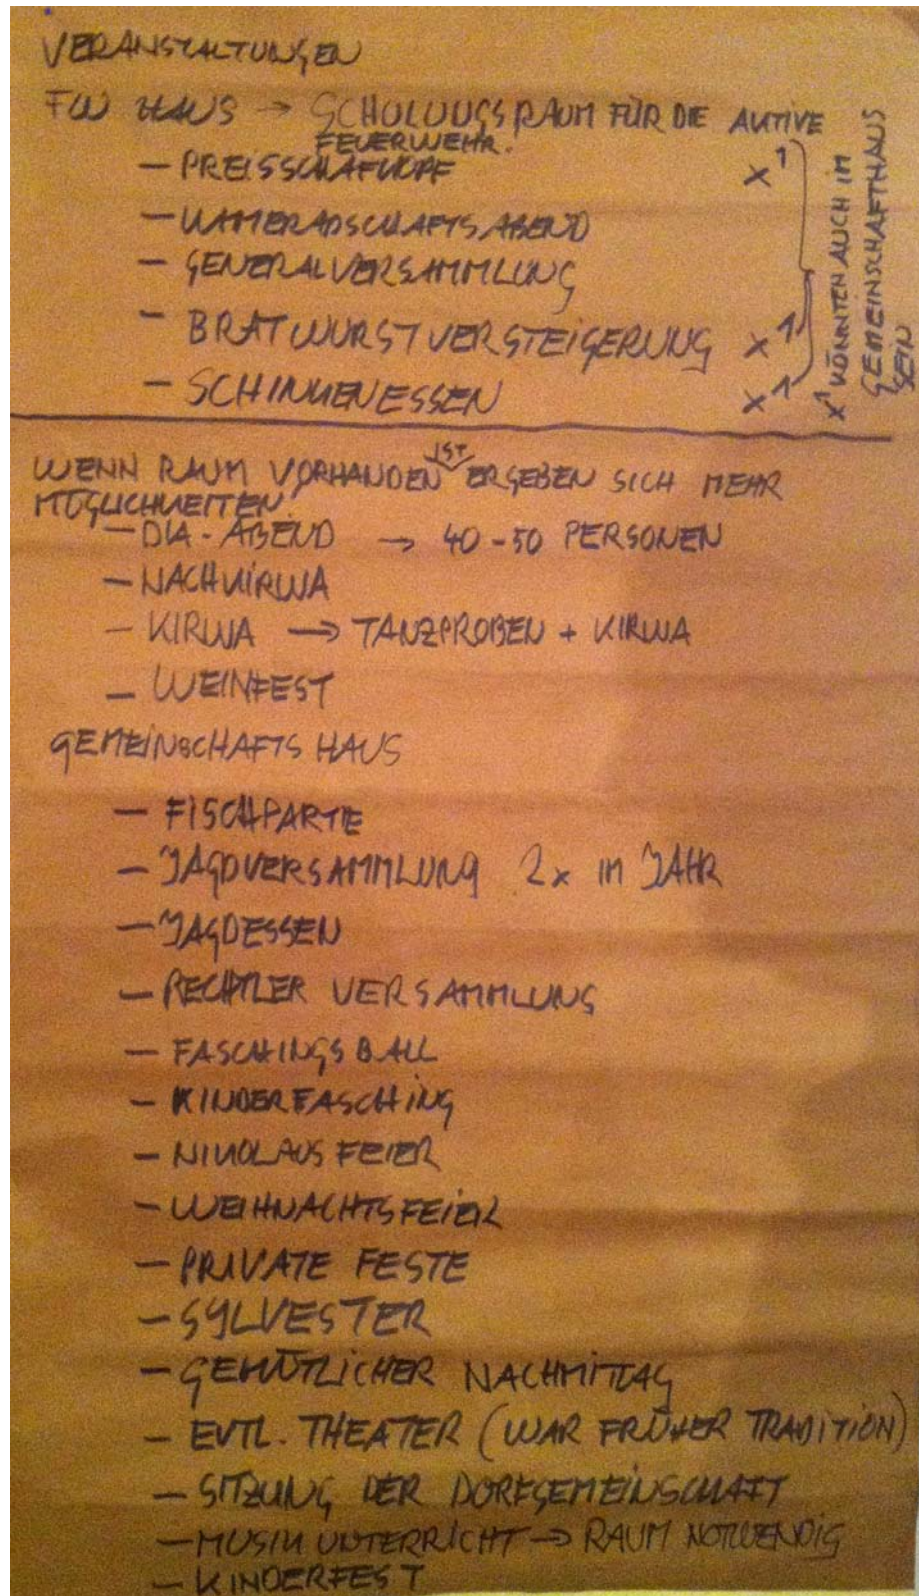 VERANSTALTUNGEN
FW HAUS → SCHULUNGSRAUM FÜR DIE AKTIVE
FEUERWEHR.
– PREISSCHAFKOPF x¹
– KAMERADSCHAFTSABEND
– GENERALVERSAMMLUNG
– BRATWURSTVERSTEIGERUNG x¹
– SCHINKENESSEN x¹
x¹ KÖNNTEN AUCH IM
GEMEINSCHAFTHAUS
SEIN
WENN RAUM VORHANDEN IST ERGEBEN SICH MEHR
MÖGLICHKEITEN
– DIA-ABEND → 40-50 PERSONEN
– NACHKIRWA
– KIRWA → TANZPROBEN + KIRWA
– WEINFEST
GEMEINSCHAFTS HAUS
– FISCHPARTIE
– JAGDVERSAMMLUNG 2x IM JAHR
– JAGDESSEN
– RECHTLER VERSAMMLUNG
– FASCHINGSBALL
– KINDERFASCHING
– NIKOLAUSFEIER
– WEIHNACHTSFEIER
– PRIVATE FESTE
– SYLVESTER
– GEMÜTLICHER NACHMITTAG
– EVTL. THEATER (WAR FRÜHER TRADITION)
– SITZUNG DER DORFGEMEINSCHAFT
– MUSIK UNTERRICHT → RAUM NOTWENDIG
– KINDERFEST